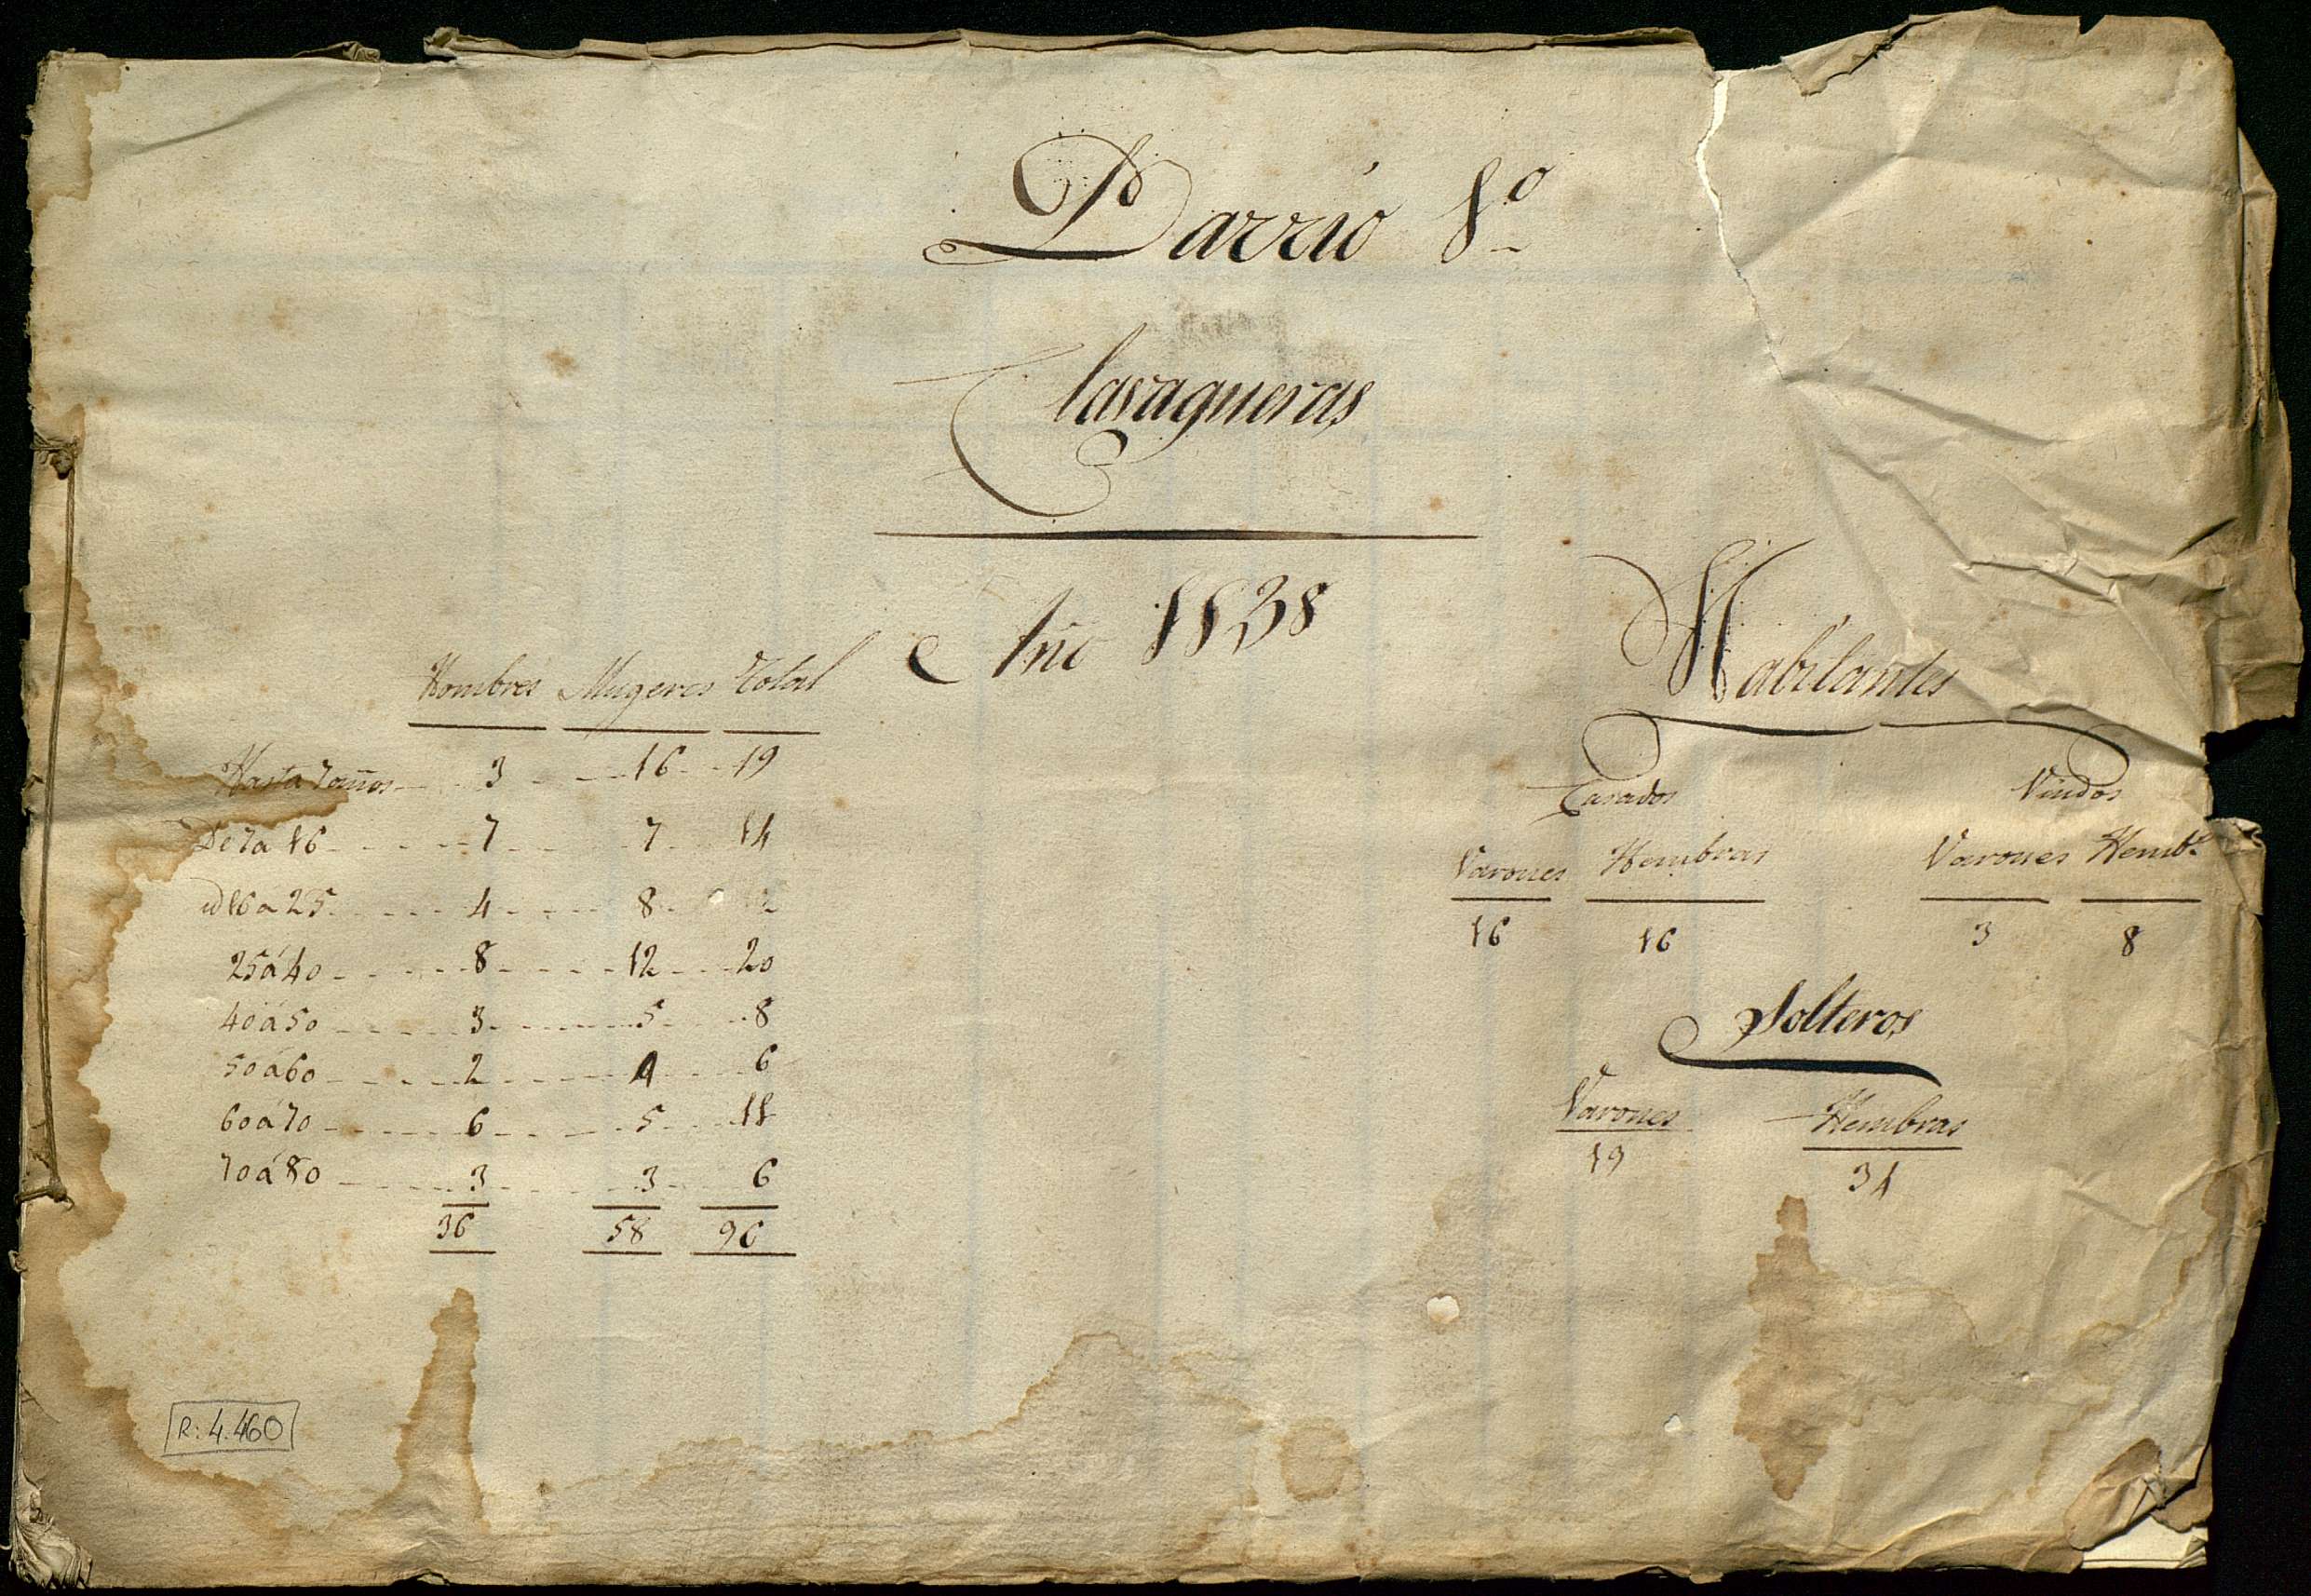 Barrio 8º
Clavagueras
Año 1838
Hombres Mugeres Total
Hasta 7 años 3 16 19
De 7 a 16 7 7 14
d 16 a 25 4 8
25 á 40 8 12 20
40 á 50 3 5 8
50 á 60 2 4 6
60 á 70 6 5 11
70 á 80 3 3 6
36 58 96
Habitantes
Casados Viudos
Varones Hembras Varones Hembs
16 16 3 8
Solteros
Varones Hembras
19 34
R: 4.460